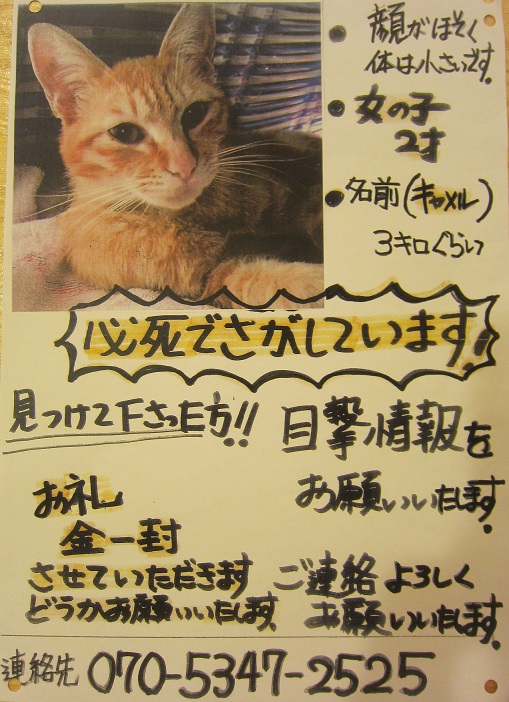 顔がほそく
体は小さいです。
女の子
2才
名前(キャメル)
3キロぐらい
必死でさがしています!
見つけて下さった方!!
目撃情報を
お願いいたします。
お礼
金一封
させていただきます
どうかお願いいたします。
ご連絡よろしく
お願いいたします。
連絡先 070-5347-2525